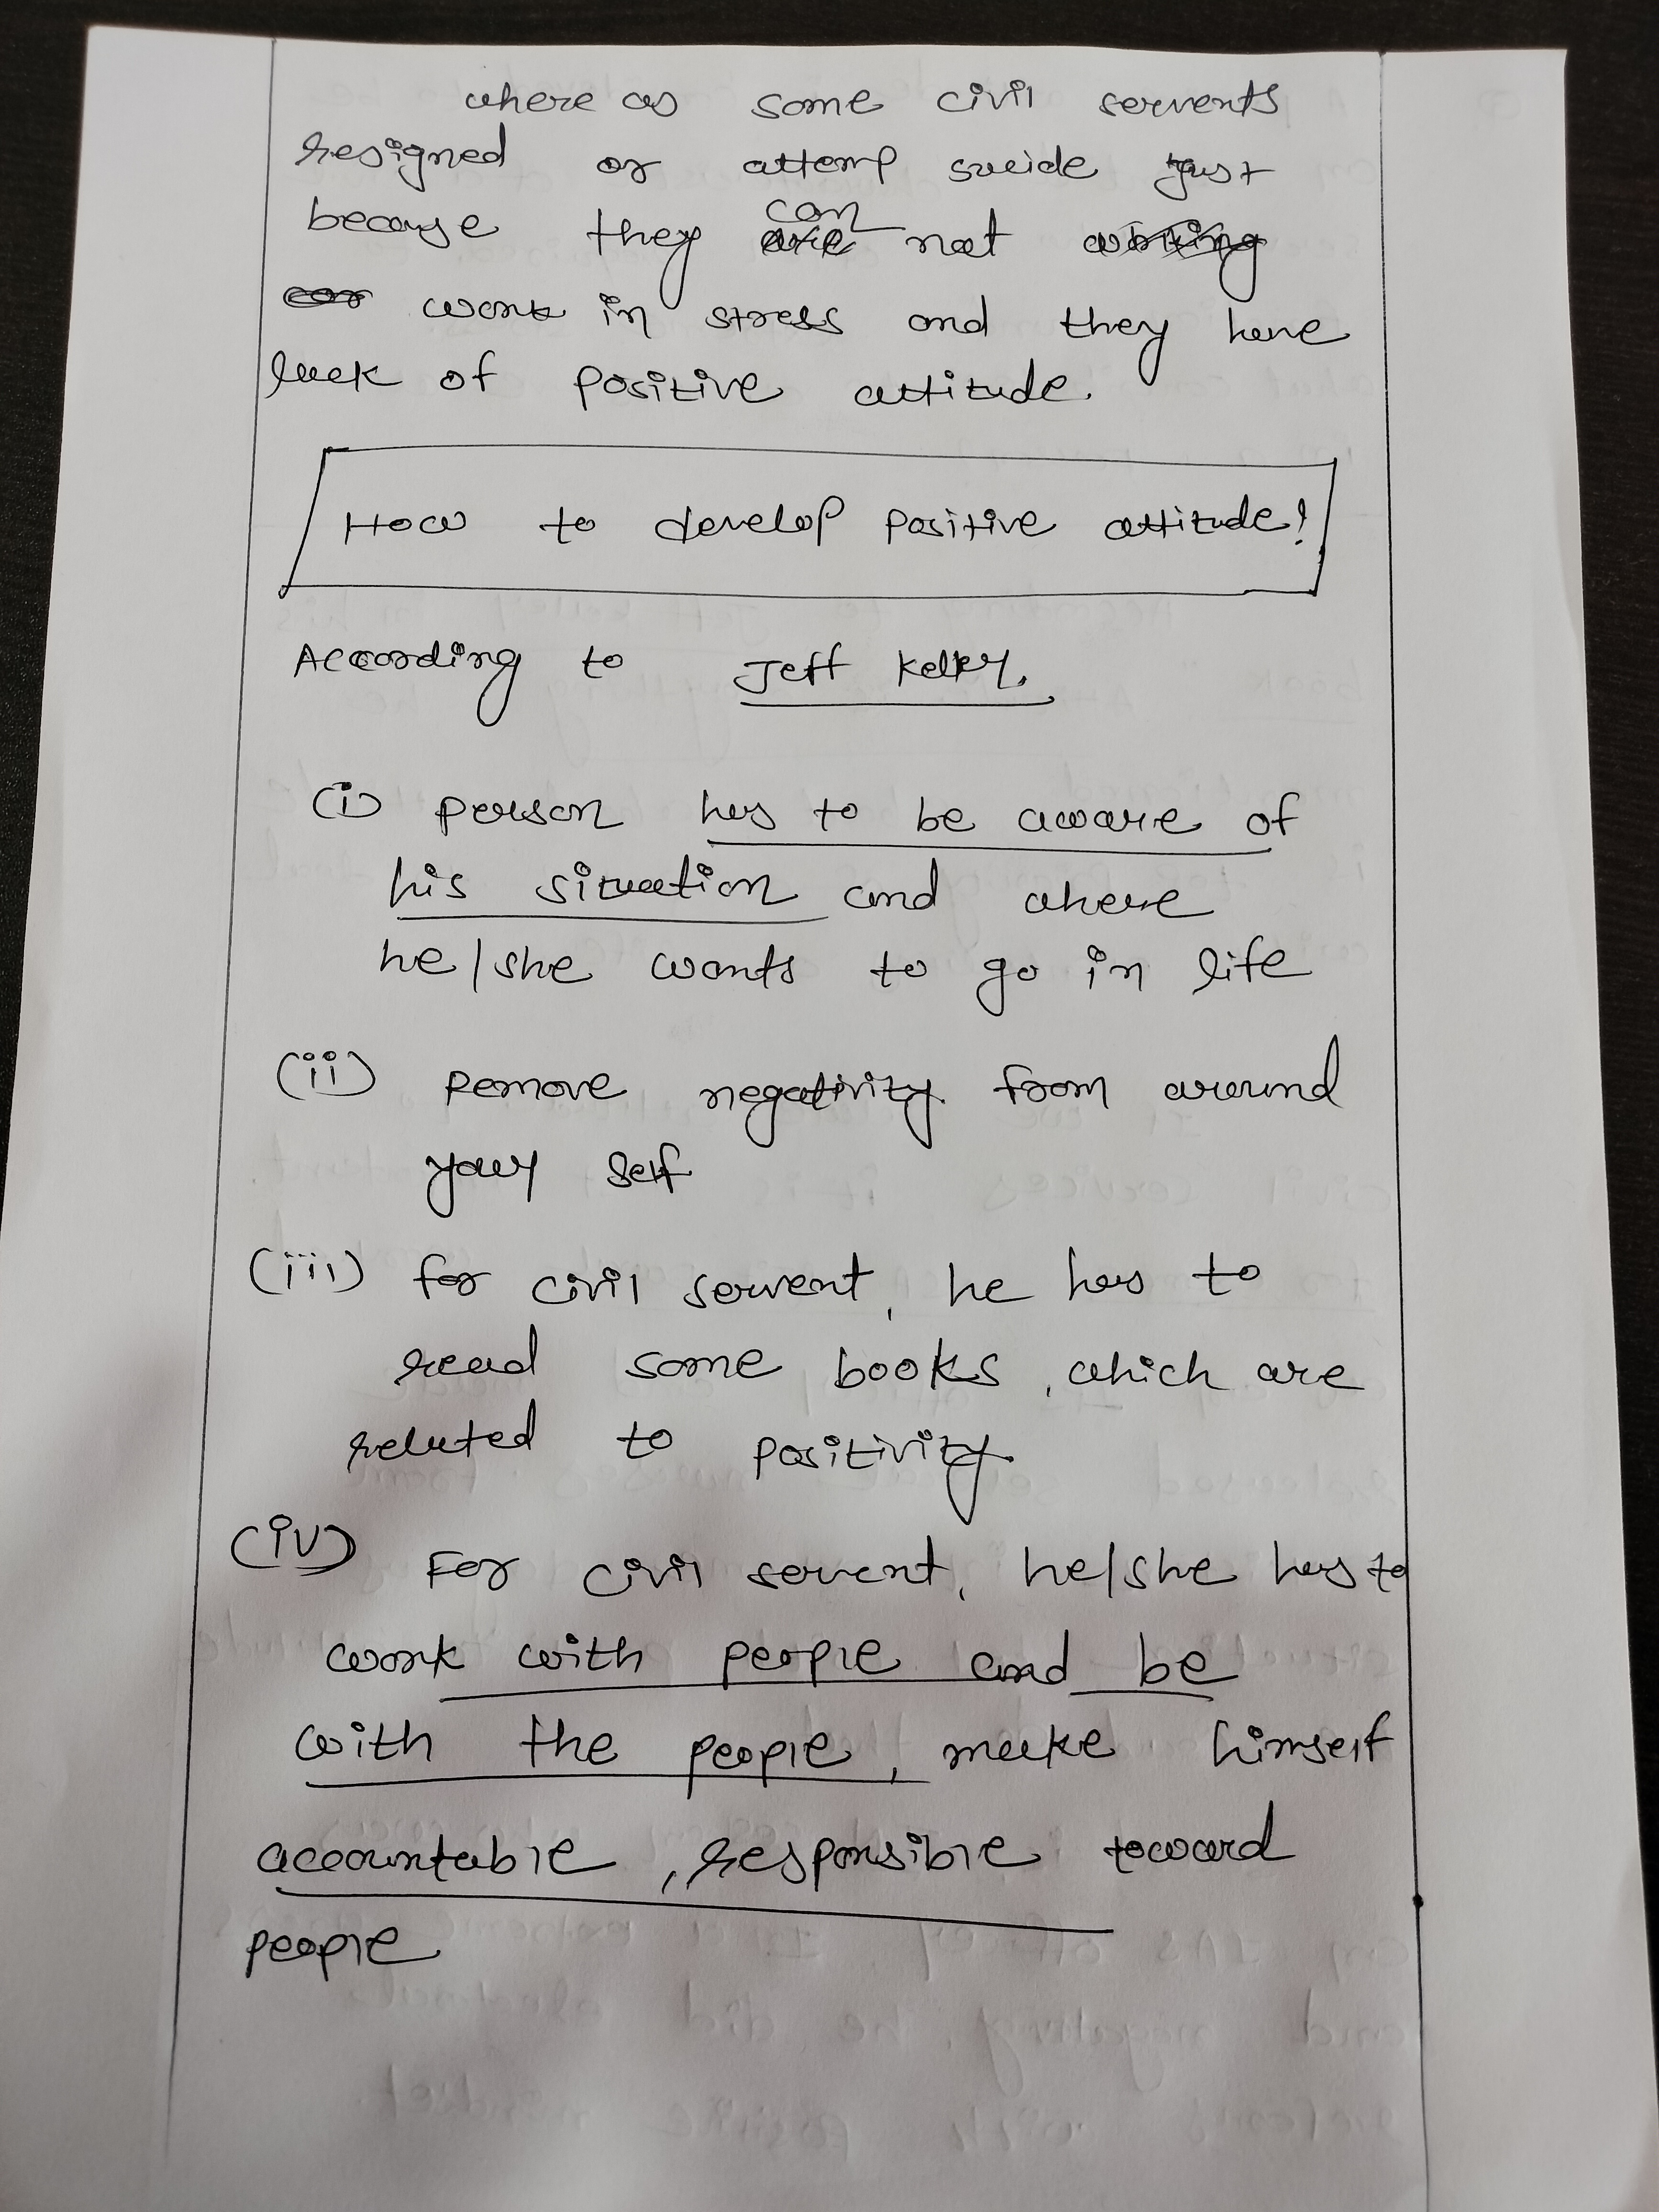 where as some civil servents
resigned or attemp sucide just
becouse they can not
work in stress and they have
lack of positive attitude.
How to develop positive attitude!
According to Jeff Keller,
(i) person has to be aware of
his situation and where
he/she wants to go in life
(ii) Remove negativity from around
your self
(iii) for civil servent, he has to
read some books, which are
related to positivity.
(iv) For civil servent, he/she has to
work with people and be
with the people, make himself
accountable, responsible toward
people